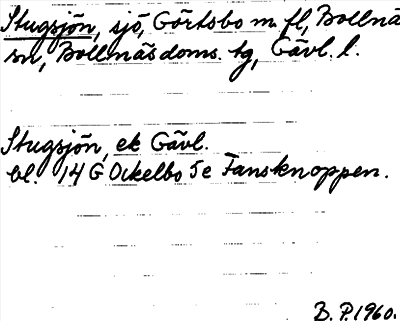 Stugsjön, sjö, Görtsbo m. fl., Bollnä
sn, Bollnäs doms. tg, Gävl. l.
Stugsjön, ek Gävl.
bl. 14 G Ockelbo 5e Fansknoppen.
B. P. 1960.